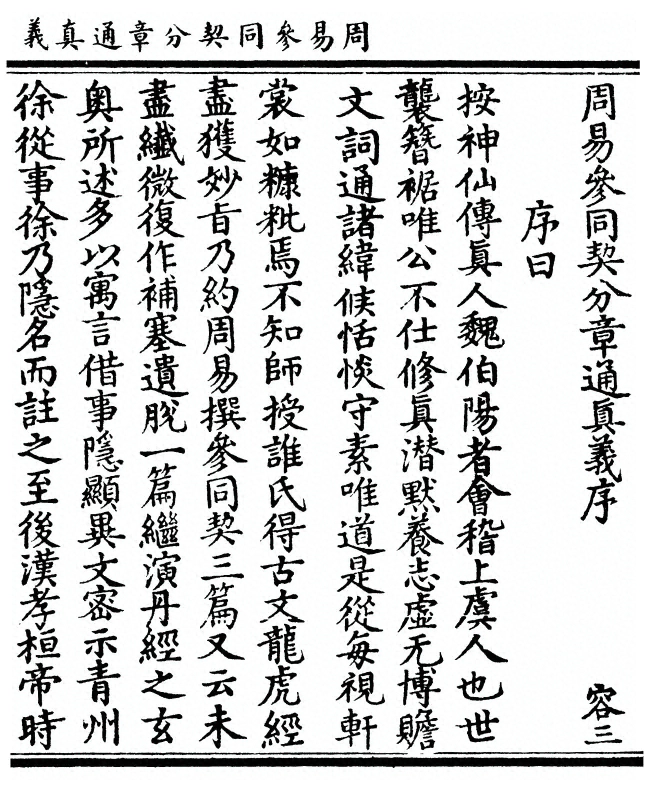 周易參同契分章通真義
周易參同契分章通眞義序 容三
序曰
按神仙傳眞人魏伯陽者會稽上虞人也世
襲簪裾唯公不仕修眞潜默養志虛无博贍
文詞通諸緯候恬惔守素唯道是從每視軒
裳如糠粃焉不知師授誰氏得古文龍虎經
盡獲妙旨乃約周易撰參同契三篇又云未
盡纖微復作補塞遺脫一篇繼演丹經之玄
奥所述多以寓言借事隱顯異文密示青州
徐從事徐乃隱名而註之至後漢孝桓帝時